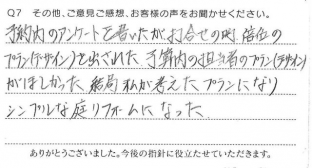 Q7 その他、ご意見ご感想、お客様の声をお聞かせください。
予算内のアンケートを書いたが、お任せの時、倍位の
プラン(デザイン)を出された 予算内の担当者のプラン(デザイン)
がほしかった 結局 私が考えた プランになり
シンプルな庭リフォームになった
ありがとうございました。今後の指針に役立たせていただきます。